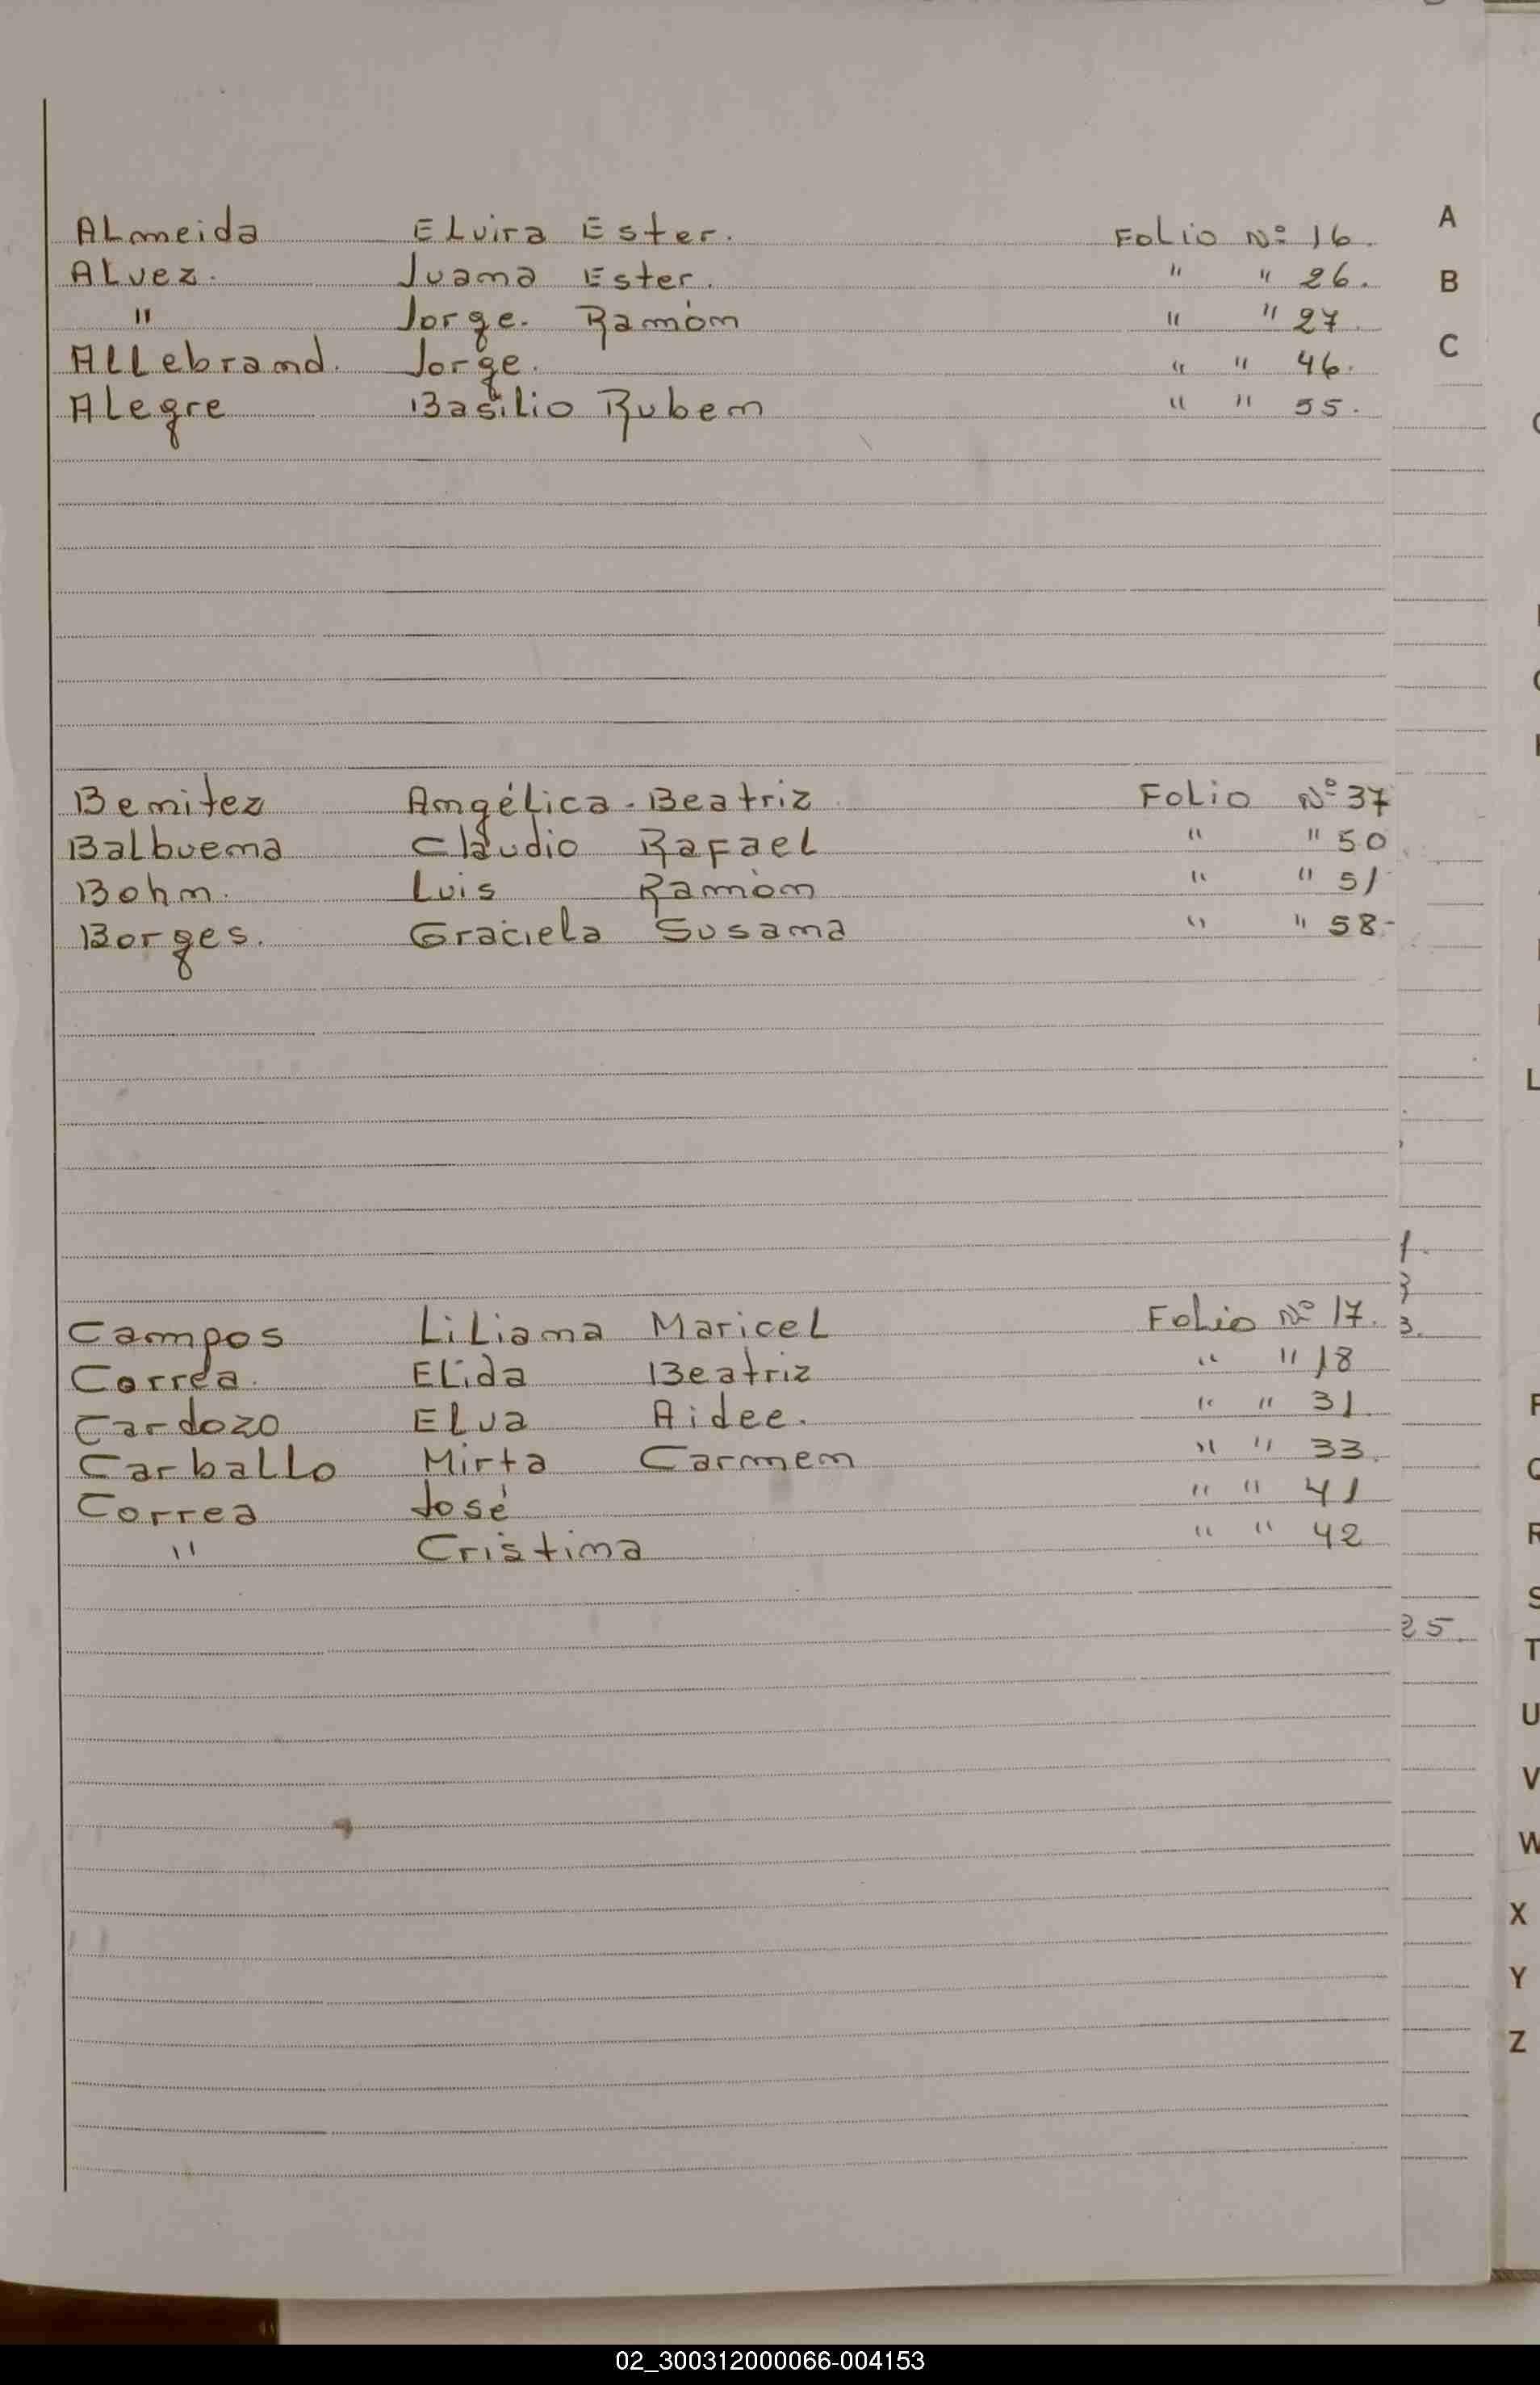 Almeida Elvira Ester. Folio Nº 16.
Alvez. Juana Ester. " " 26.
" Jorge. Ramón " " 27.
Allebrand. Jorge. " " 46.
Alegre Basilio Ruben " " 55.
Benitez Angélica - Beatriz Folio Nº 37
Balbuena Claudio Rafael " " 50
Bohm. Luis Ramón " " 51
Borges. Graciela Susana " " 58-
Campos Liliana Maricel Folio Nº 17.
Correa. Elida Beatriz " " 18
Cardozo Elva Aidee. " " 31.
Carballo Mirta Carmen " " 33.
Correa José " " 41
" Cristina " " 42
A
B
C
1.
3
3.
25.
L
R
S
T
U
V
W
X
Y
Z
02_300312000066-004153